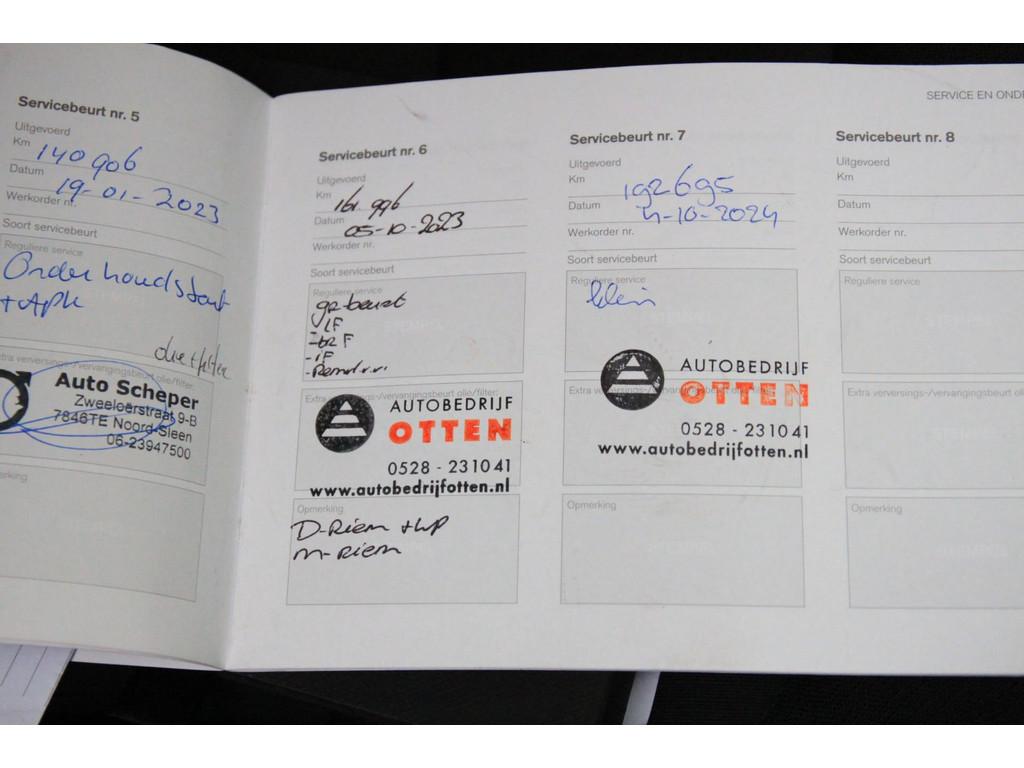 Servicebeurt nr. 5
Uitgevoerd
Km 140 906
Datum 19-01-2023
Werkorder nr.
Soort servicebeurt
Reguliere service
Onderhoudsbeurt
+ Apk
olie + filter
Extra verversings-/vervangingsbeurt olie/filter:
Auto Scheper
Zweeloërstraat 9-B
7846TE Noord-Sleen
06-23947500
Servicebeurt nr. 6
Uitgevoerd
Km 161.996
Datum 05-10-2023
Werkorder nr.
Soort servicebeurt
Reguliere service
gr beurt
- LF
- br F
- iF
- Remvl.v.v.
Extra verversings-/vervangingsbeurt olie/filter:
AUTOBEDRIJF
OTTEN
0528 - 231041
www.autobedrijfotten.nl
Opmerking
D-Riem + WP
M-Riem
Servicebeurt nr. 7
Uitgevoerd
Km 192695
Datum 4-10-2024
Werkorder nr.
Soort servicebeurt
Reguliere service
klein
Extra verversings-/vervangingsbeurt olie/filter:
AUTOBEDRIJF
OTTEN
0528 - 231041
www.autobedrijfotten.nl
Opmerking
SERVICE EN ONDE
Servicebeurt nr. 8
Uitgevoerd
Km
Datum
Werkorder nr.
Soort servicebeurt
Reguliere service
Extra verversings-/vervangingsbeurt
Opmerking